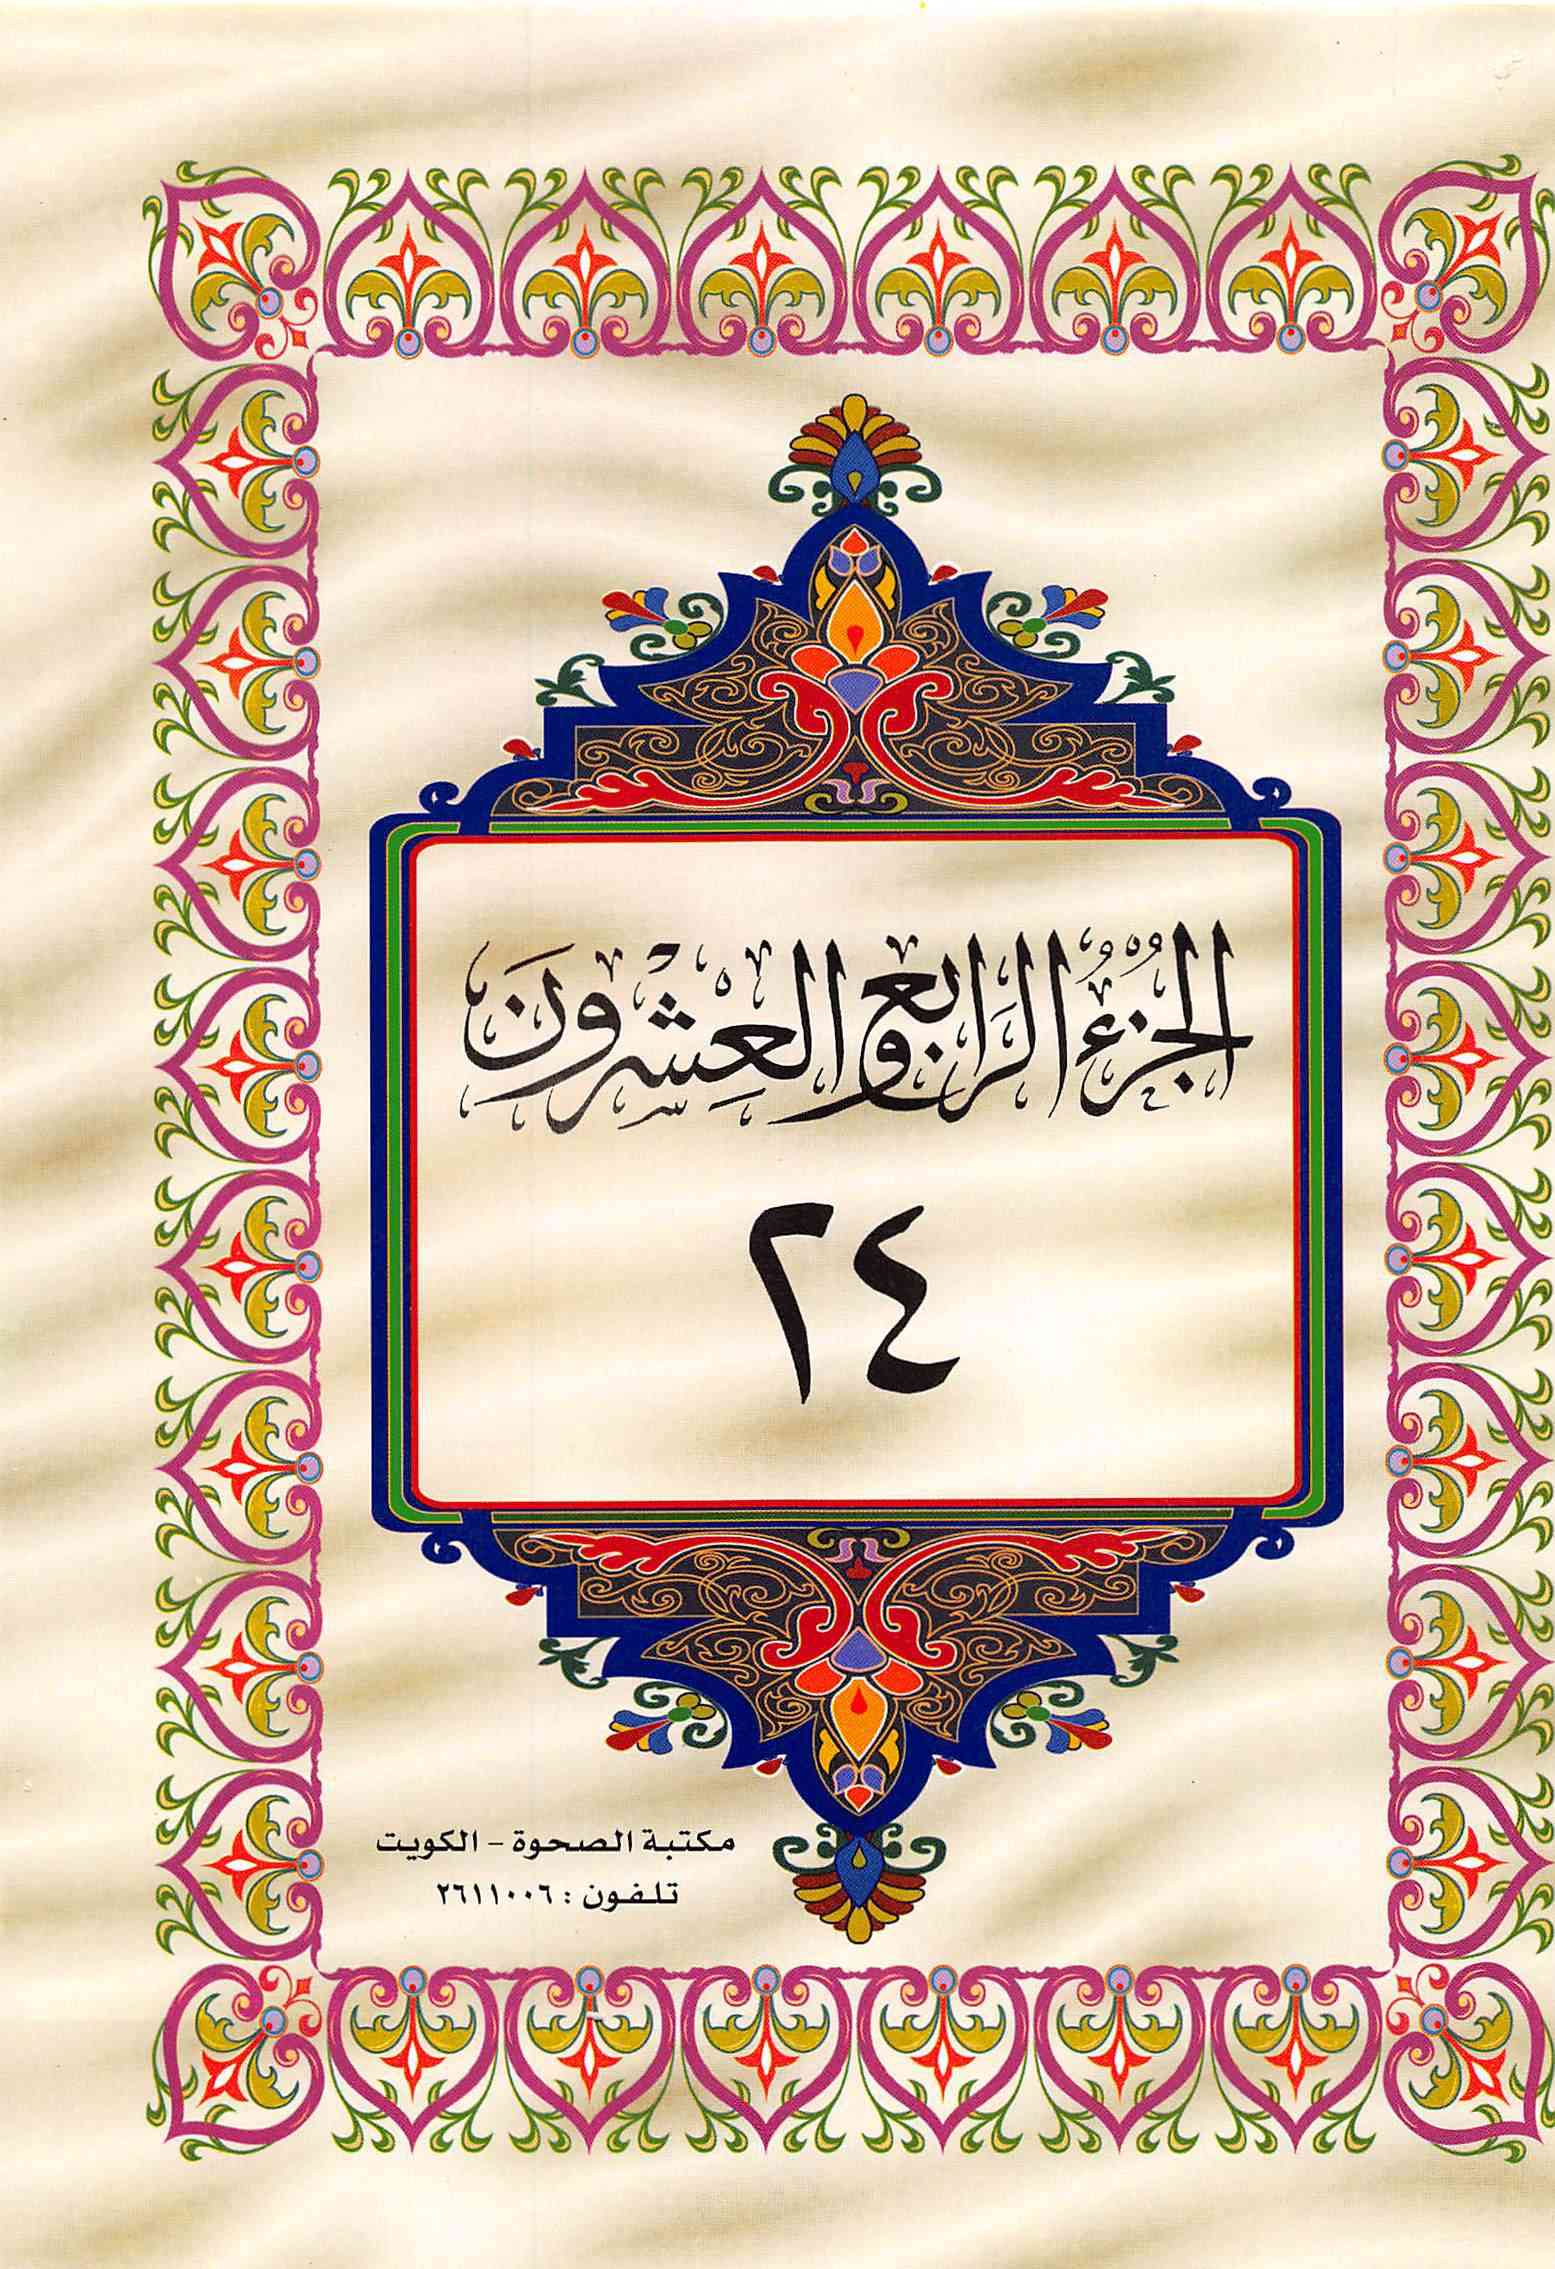 الجُزْءُ الرَّابِعُ وَالْعِشْرُونَ
٢٤
مكتبة الصحوة - الكويت
تلفون : ٢٦١١٠٠٦